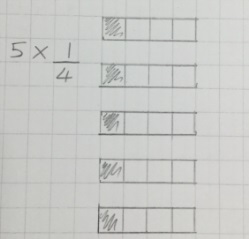 5 × 1/4